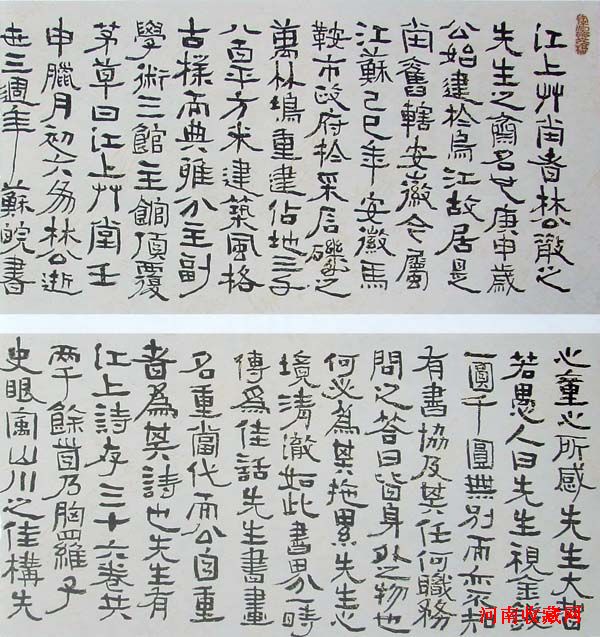 江上艸堂者林公散之
先生之齋名也庚申歲
公始建於烏江故居是
堂舊轄安徽今屬
江蘇己巳年安徽馬
鞍市政府於采石磯之
萬林塢重建佔地三千
八百平方米建築風格
古樸而典雅分主副
學術三館主館頂覆
茅草曰江上艸堂壬
申臘月初六為林公逝
世三週年 蘇皖書
心童心所感先生大智
若愚人曰先生視金錢
一圓千圓無別而亦未
有書協及其任何職務
問之答曰皆身外之物也
何必為其拖累先生心
境清澈如此書界一時
傳爲佳話先生書畫
名重當代而公自重
者為其詩也先生有
江上詩存三十六卷共
兩千餘首乃胸羅子
史眼寓山川之佳構先
河南收藏网